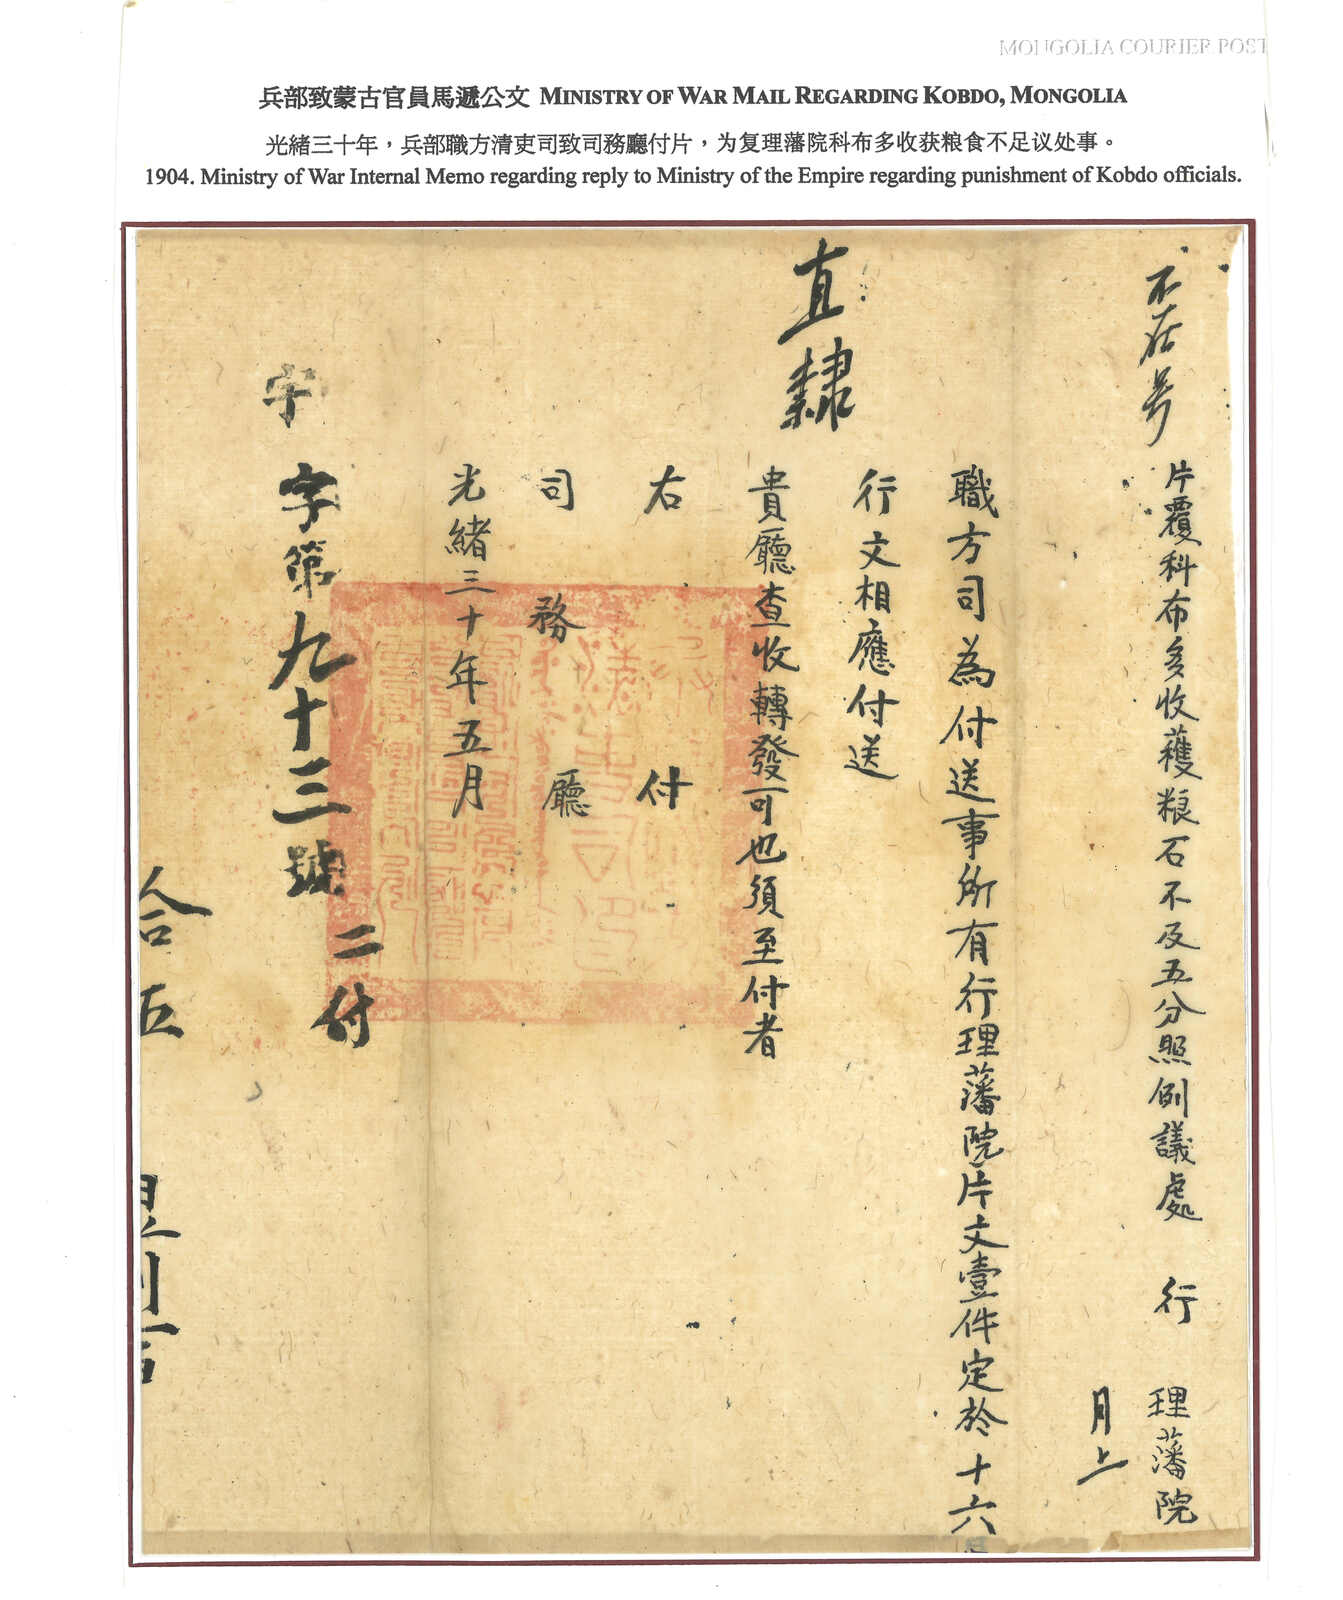 MONGOLIA COURIER POST
兵部致蒙古官員馬遞公文 MINISTRY OF WAR MAIL REGARDING KOBDO, MONGOLIA
光緒三十年，兵部職方清吏司致司務廳付片，为复理藩院科布多收获粮食不足议处事。
1904. Ministry of War Internal Memo regarding reply to Ministry of the Empire regarding punishment of Kobdo officials.
不在号
片覆科布多收穫粮石不及五分照例議處 行 理藩院
月上
職方司為付送事所有行理藩院片文壹件定於十六日
行文相應付送
直隸
貴廳查收轉發可也須至付者
右 付
司 務 廳
光緒三十年五月
二付
字 字第九十三號